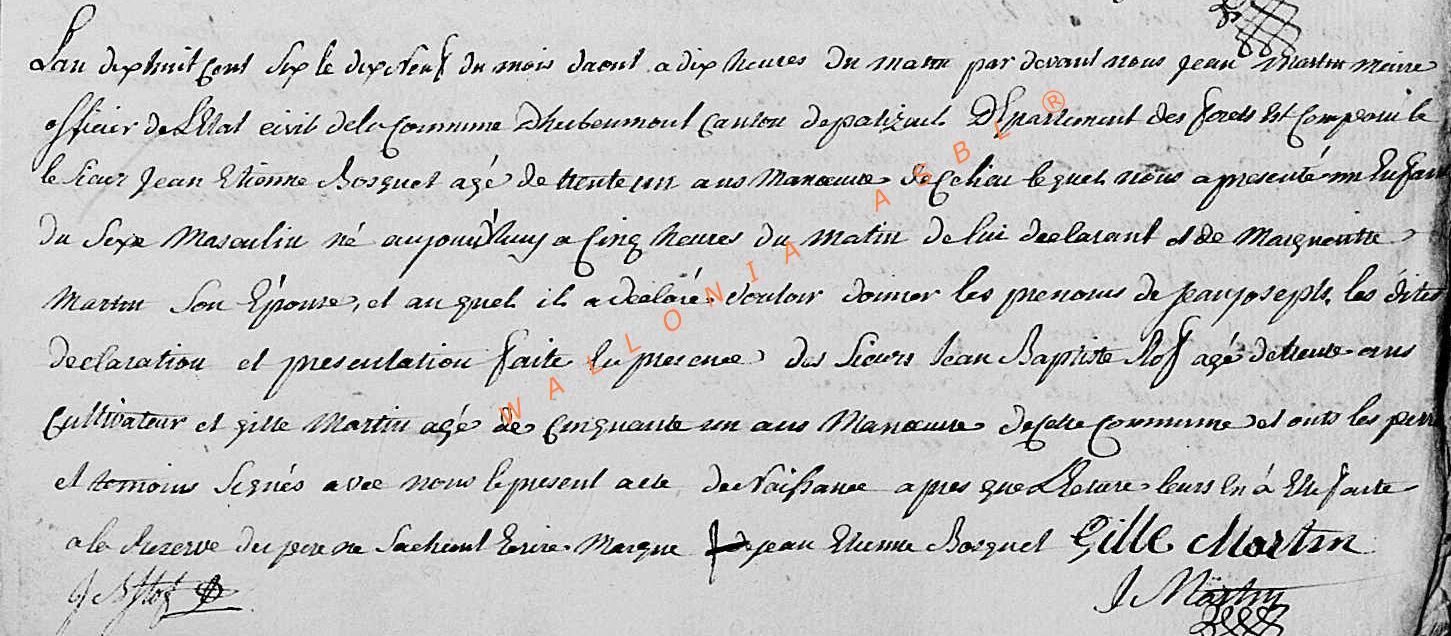 Lan dixhuit cent Six le dix neuf du mois daout a dix heures du matin par devant nous Jean Martin maire
officier de LEtat civil dela Commune Dherbeumont Canton depalizeul Département des forets Est Comparu le
le Sieur Jean Etienne Bosquet agé de trente un ans Manœuvre de Ce lieu lequel nous a presenté un Enfant
du Sexe Masculin né aujourdhuy a Cinq heures du matin de lui declarant et de Margueritte
Martin Son Epouse, et auquel il a declaré Vouloir donner les prenoms de Jean joseph, les dites
declaration et presentation faite En presence des Sieurs Jean Baptiste agé detrente ans
Cultivateur et gille Martin agé de Cinquante un ans Manœuvre deCette Commune et onts les pere
et temoins Signés avec nous le present acte de Naissance apres que Lecture leurs En à Eté faite
a la Reserve du pere ne Sachant Ecrire Marque de jean Etienne Bosquet Gille Martin
J Martin
WALLONIA ASBL ®